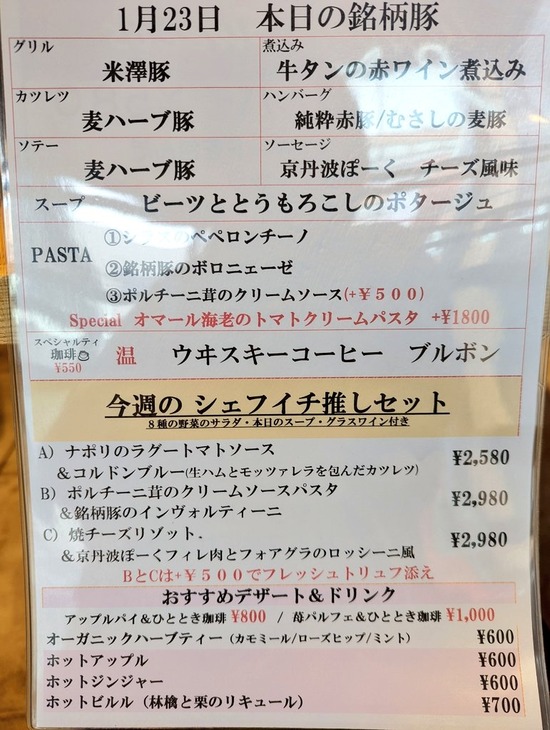 1月23日 本日の銘柄豚
グリル
米澤豚
煮込み
牛タンの赤ワイン煮込み
カツレツ
麦ハーブ豚
ハンバーグ
純粋赤豚/むさしの麦豚
ソテー
麦ハーブ豚
ソーセージ
京丹波ぽーく チーズ風味
スープ ビーツととうもろこしのポタージュ
PASTA
①のペペロンチーノ
②銘柄豚のボロニェーゼ
③ポルチーニ茸のクリームソース(+￥500)
Special オマール海老のトマトクリームパスタ +¥1800
スペシャルティ
珈琲
¥550
温 ウヰスキーコーヒー ブルボン
今週の シェフイチ推しセット
8種の野菜のサラダ・本日のスープ・グラスワイン付き
A) ナポリのラグートマトソース
&コルドンブルー(生ハムとモッツァレラを包んだカツレツ) ¥2,580
B) ポルチーニ茸のクリームソースパスタ
&銘柄豚のインヴォルティーニ ¥2,980
C) 焼チーズリゾット.
&京丹波ぽーくフィレ肉とフォアグラのロッシーニ風 ¥2,980
BとCは+￥500でフレッシュトリュフ添え
おすすめデザート&ドリンク
アップルパイ&ひととき珈琲 ¥800 / 苺パルフェ&ひととき珈琲 ¥1,000
オーガニックハーブティー (カモミール/ローズヒップ/ミント) ¥600
ホットアップル ¥600
ホットジンジャー ¥600
ホットビルル (林檎と栗のリキュール) ¥700